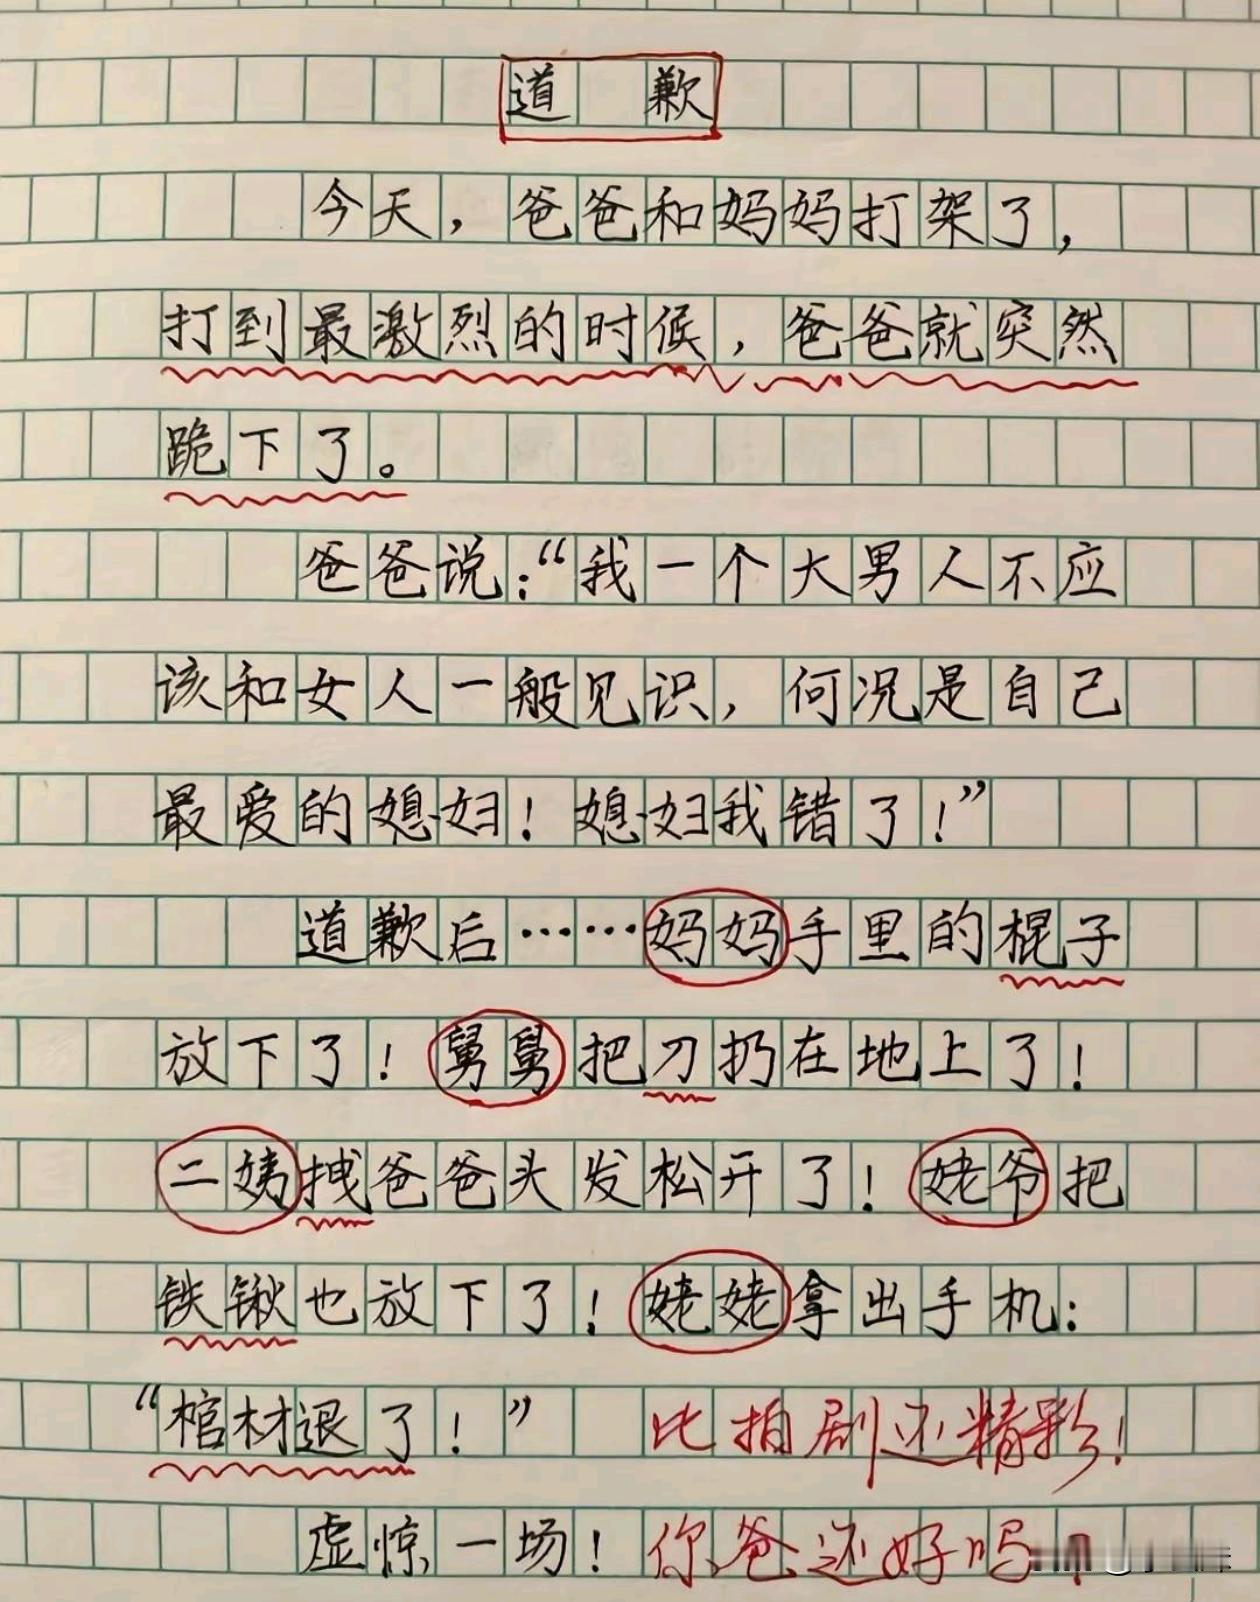 道歉
今天，爸爸和妈妈打架了，
打到最激烈的时候，爸爸就突然
跪下了。
爸爸说：“我一个大男人不应
该和女人一般见识，何况是自己
最爱的媳妇！媳妇我错了！”
道歉后……妈妈手里的棍子
放下了！舅舅把刀扔在地上了！
二姨拽爸爸头发松开了！姥爷把
铁锹也放下了！姥姥拿出手机：
“棺材退了！” 比拍剧还精彩！
虚惊一场！你爸还好吗